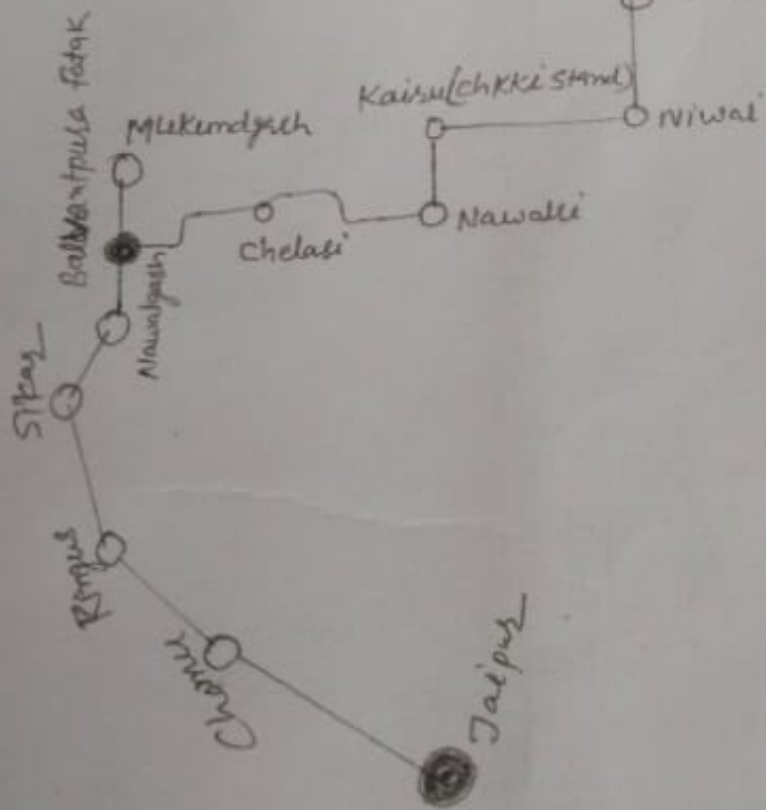 Balwantpura Fatak
Mukundgarh
Kairu(chkki stand)
Niwai
Chelasi
Nawalli
Nawalgarh
Sikar
Ringus
Chomu
Jaipur